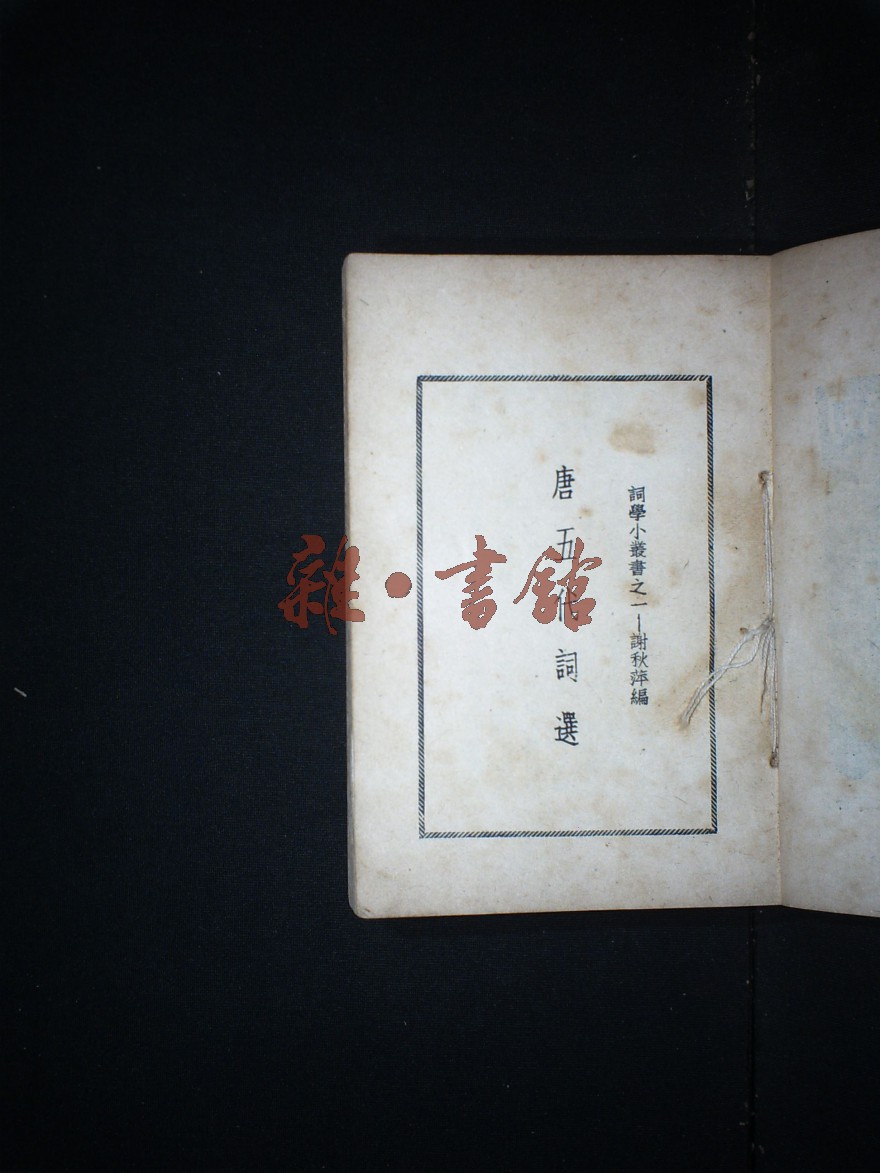 詞學小叢書之一—謝秋萍編
唐五代詞選
雜·書館